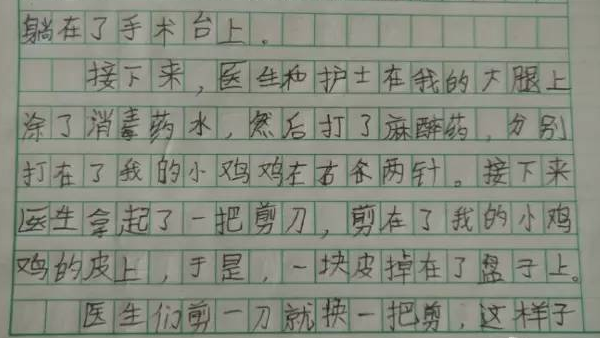 躺在了手术台上。
接下来，医生和护士在我的大腿上
涂了消毒药水，然后打了麻醉药，分别
打在了我的小鸡鸡左右各两针。接下来
医生拿起了一把剪刀，剪在了我的小鸡
鸡的皮上，于是，一块皮掉在了盘子上。
医生们剪一刀就换一把剪，这样子